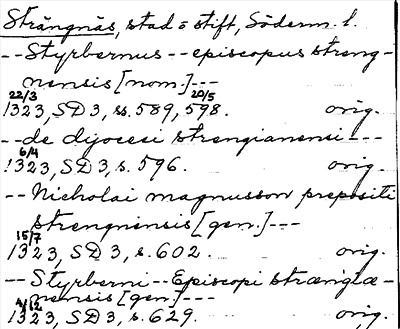 Strängnäs, stad o stift, Söderm. l.
--Styrbernus--episcopus streng-
nensis [nom.]---
22/3 20/5
1323, SD 3, ss. 589, 598. orig.
--de dyocesi strengianensi---
6/4
1323, SD 3, s. 596. orig.
--Nicholai magnusson prepositi
strengnensis [gen.]---
15/7
1323, SD 3, s. 602. orig.
--Styrberni--Episcopi strænglæ-
nensis [gen.]---
4/12
1323, SD 3, s. 629. orig.